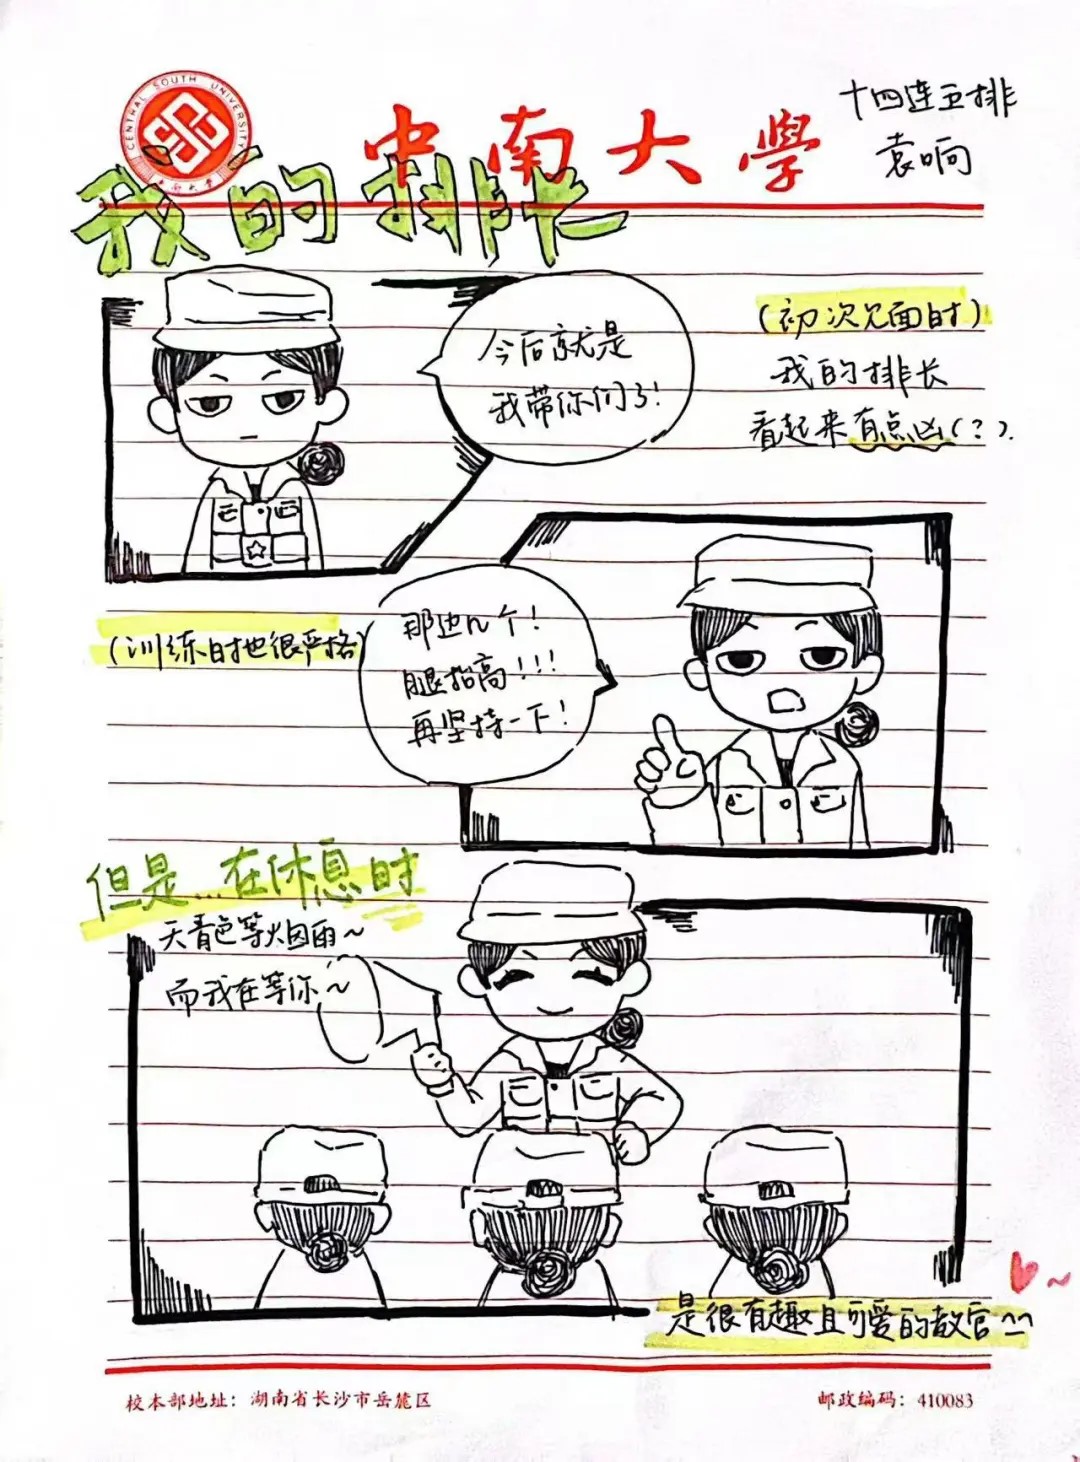 CENTRAL SOUTH UNIVERSITY
中南大学
中南大学
十四连五排
袁响
我的排长
今后就是
我带你们了!
(初次见面时)
我的排长
看起来有点凶(?).
(训练时也很严格)
那边几个!
腿抬高!!!
再坚持一下!
但是...在休息时
天青色等烟雨~
而我在等你~
是很有趣且可爱的教官~~
校本部地址:湖南省长沙市岳麓区
邮政编码:410083